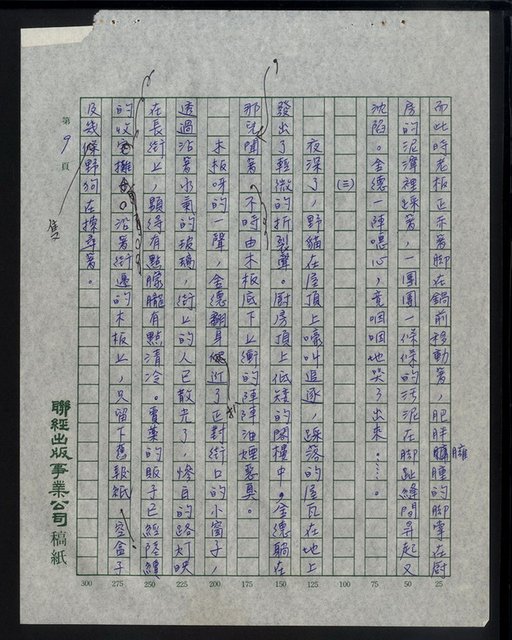 而此時老板正赤著腳在鍋前移動著,肥胖臃腫的腳掌在廚
房的泥濘裡踩著,一團團一條條的污泥在腳趾縫間昇起又
沈陷。金德一陣噁心,竟嘓嘓地哭了出來……。
(三)
夜深了,野貓在屋頂上嚎叫追逐,踩落的屋瓦在地上
發出了輕微的折裂聲。廚房頂上低矮的閣樓中。金德躺在
那兒聞著,不時由木板底下上衝的陣陣油煙惡臭。
木板呀的一聲,金德翻身 近了正對街口的小窗子,
透過沿著水氣的玻璃,街上的人已散光了,慘白的路灯映
在長街上,顯得有點朦朧有點清冷。賣菜的販子已經陸續
的收 攤 。沿著街邊的木板上,只留下舊報紙、空盒子
及幾條野狗在搜尋著。
第 9 頁
聯經出版事業公司稿紙
25
50
75
100
125
150
175
200
225
250
275
300